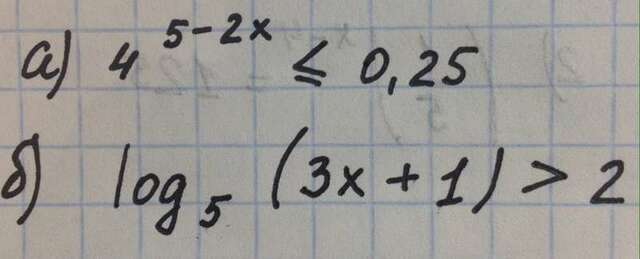 а) 4^{5-2x} ≤ 0,25
б) log_5 (3x+1) > 2